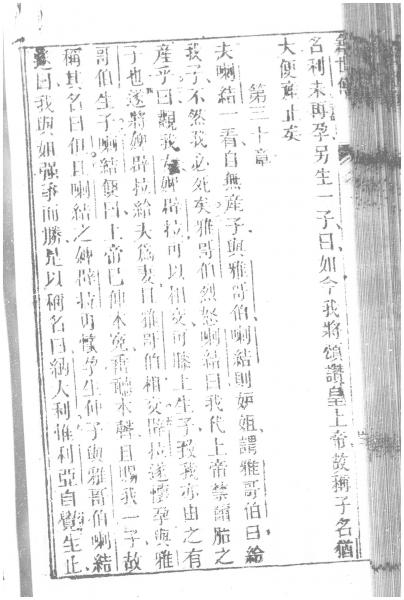 名利未再孕另生一子曰如今我將頌讚皇上帝故稱子名猶
大便産止矣
第三十章
夫喇結一看自無産子與雅哥伯喇結則妒姐謂雅哥伯曰給
我子不然我必死矣雅哥伯烈怒喇結曰我代上帝禁爾胎之
産乎曰觀我女婢辟拉可以相交可膝上生子致我亦由之有
子也遂將婢辟拉給夫爲妻且雅哥伯相交辟拉遂懷孕與雅
哥伯生子喇結便曰上帝已伸本寃垂聽本聲且賜我一子故
稱其名曰但且喇結之婢辟拉再懷孕生仲子與雅哥伯喇結
遂曰我與姐强爭而勝是以稱名曰納大利惟利亞自覺生止